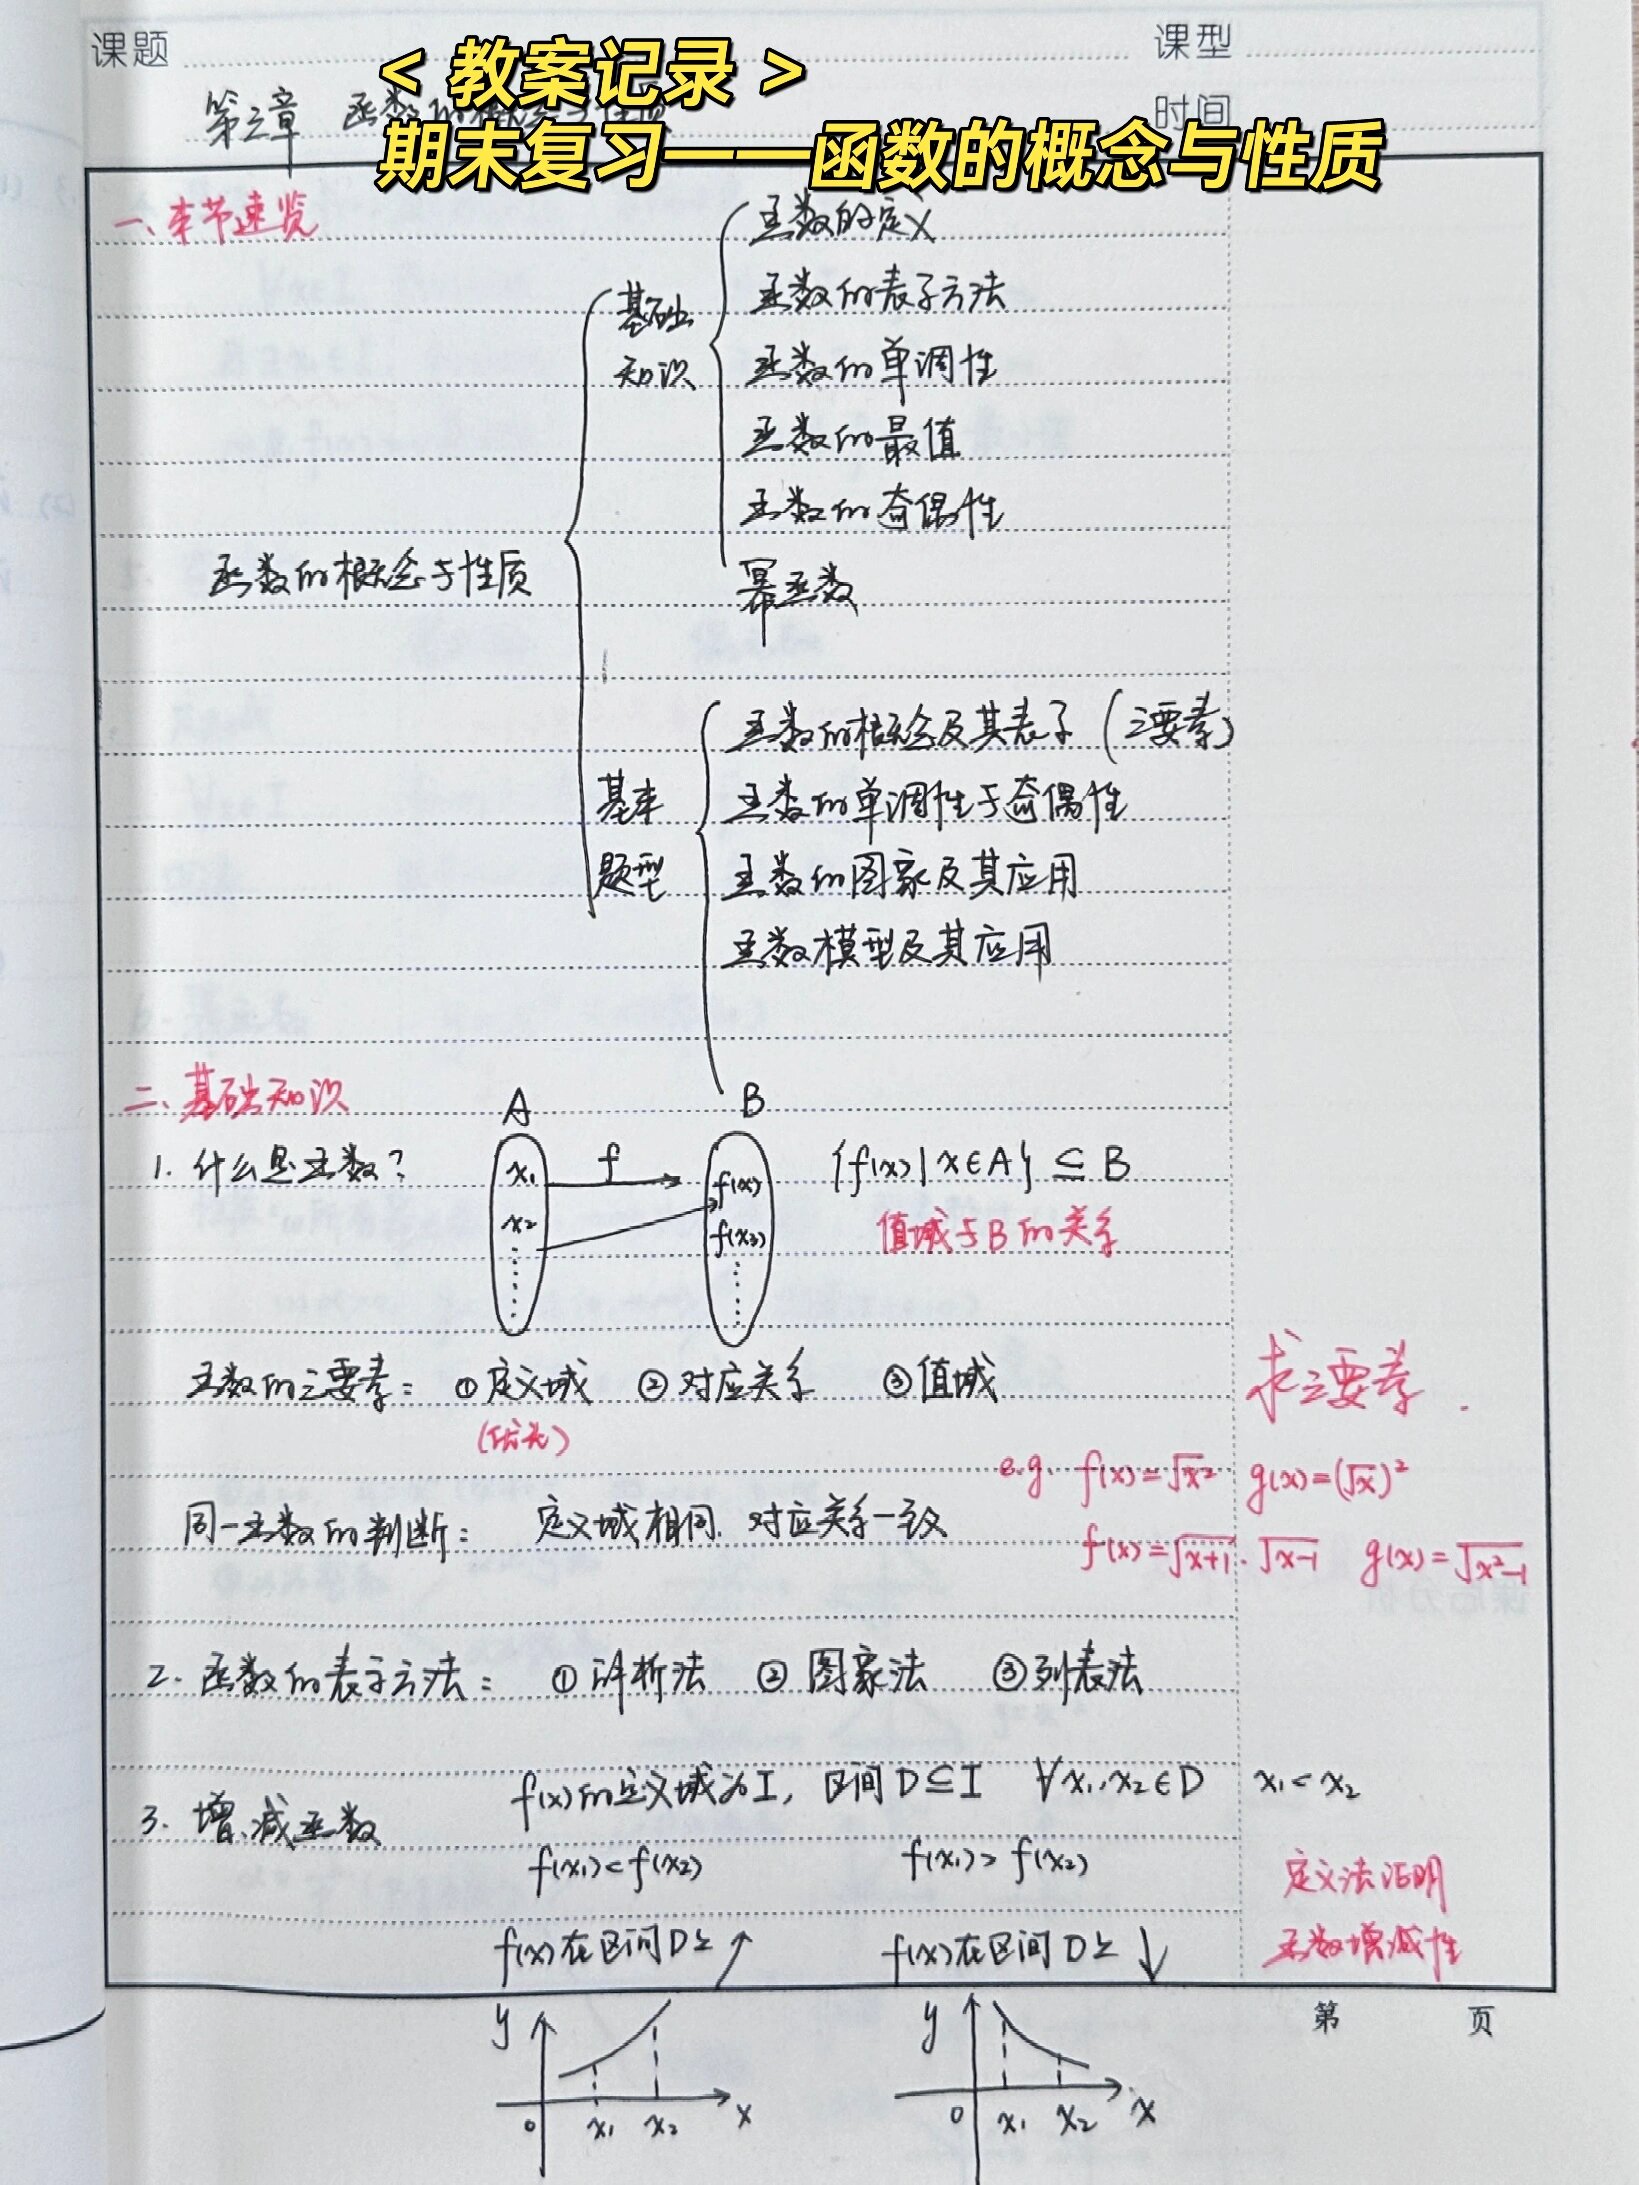 课题
课型
< 教案记录 >
第三章 函数的概念与性质
时间
期末复习——函数的概念与性质
一、本节速览
函数的概念与性质
基础
知识
函数的定义
函数的表示方法
函数的单调性
函数的最值
函数的奇偶性
幂函数
基本
题型
函数的概念及其表示 (三要素)
函数的单调性与奇偶性
函数的图象及其应用
函数模型及其应用
二、基础知识
1. 什么是函数?
A B
x₁ f f(x)
x₂ f(x₃)
{f(x)|x∈A} ⊆ B
值域与B的关系
函数的三要素: ①定义域 ②对应关系 ③值域
(优先)
求三要素.
e.g. f(x)=√x² g(x)=(√x)²
同一函数的判断: 定义域相同. 对应关系一致
f(x)=√x+1·√x-1 g(x)=√x²-1
2. 函数的表示方法: ①解析法 ②图象法 ③列表法
3. 增、减函数
f(x)的定义域为I, 区间D⊆I ∀x₁,x₂∈D x₁<x₂
f(x₁)<f(x₂) f(x₁)>f(x₂)
定义法证明
函数增减性
f(x)在区间D上↗ f(x)在区间D上↓
第 页
y 0 x₁ x₂ x
y 0 x₁ x₂ x